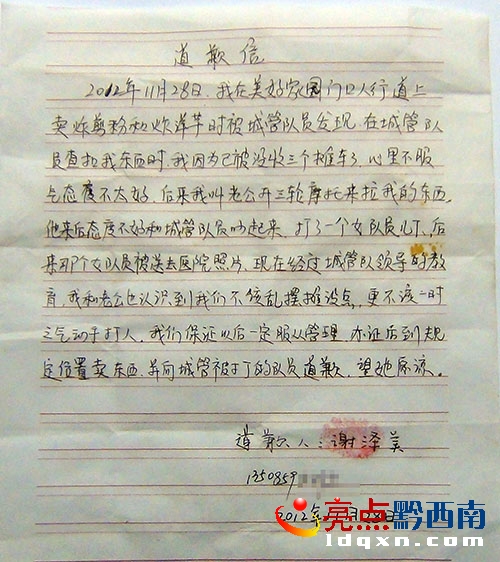 道歉信
2012年11月28日,我在美好家园门口人行道上
卖炸剪粉和炸洋芋时被城管队员发现,在城管队
员查扣我东西时,我因为已被没收三个摊车了,心里不服
气态度不太好,后来我叫老公开三轮摩托来拉我的东西,
他来后态度不好和城管队员吵起来,打了一个女队员几下,后
来那个女队员被送去医院照片,现在经过城管队领导的教
育,我和老公也认识到我们不该乱摆摊设点,更不该一时
之气动手打人,我们保证以后一定服从管理,办证后到规
定位置卖东西,并向城管被打的队员道歉,望她原谅。
道歉人:谢泽美
1350859
2012年 月28日
亮点黔西南
ldqxn.com